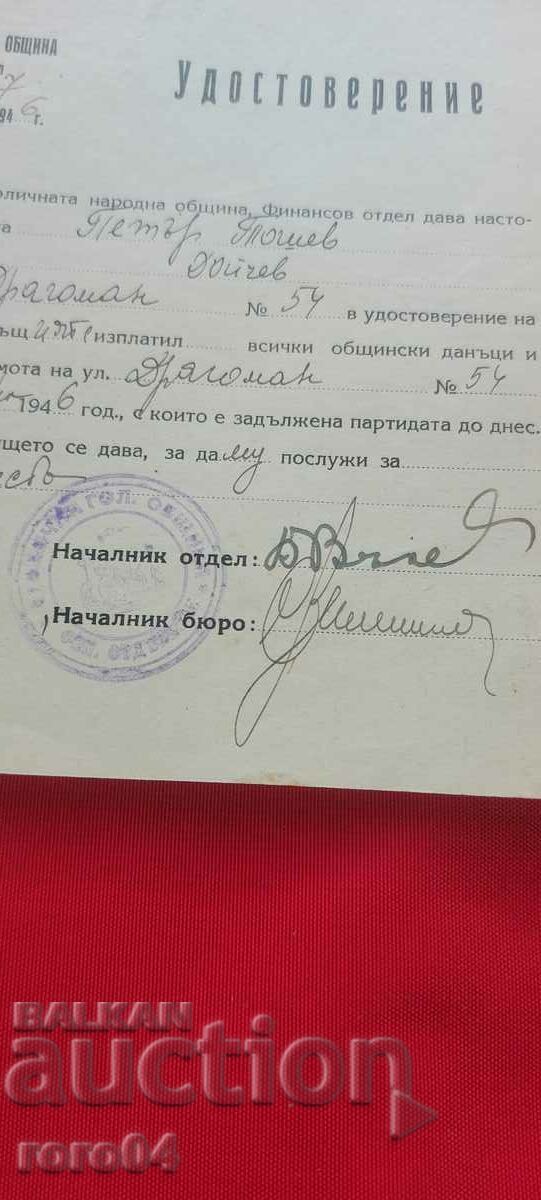 ОБЩИНА
7
Удостоверение
946 г.
оличната народна община, Финансов отдел дава насто-
а Петър Тошев
Дойчев
Драгоман № 54 в удостоверение на
ъщ изплатил всички общински данъци и
мота на ул. Драгоман № 54
1946 год., с които е задължена партидата до днес.
щето се дава, за да му послужи за
Началник отдел:
Началник бюро:
BALKAN
auction
roro04